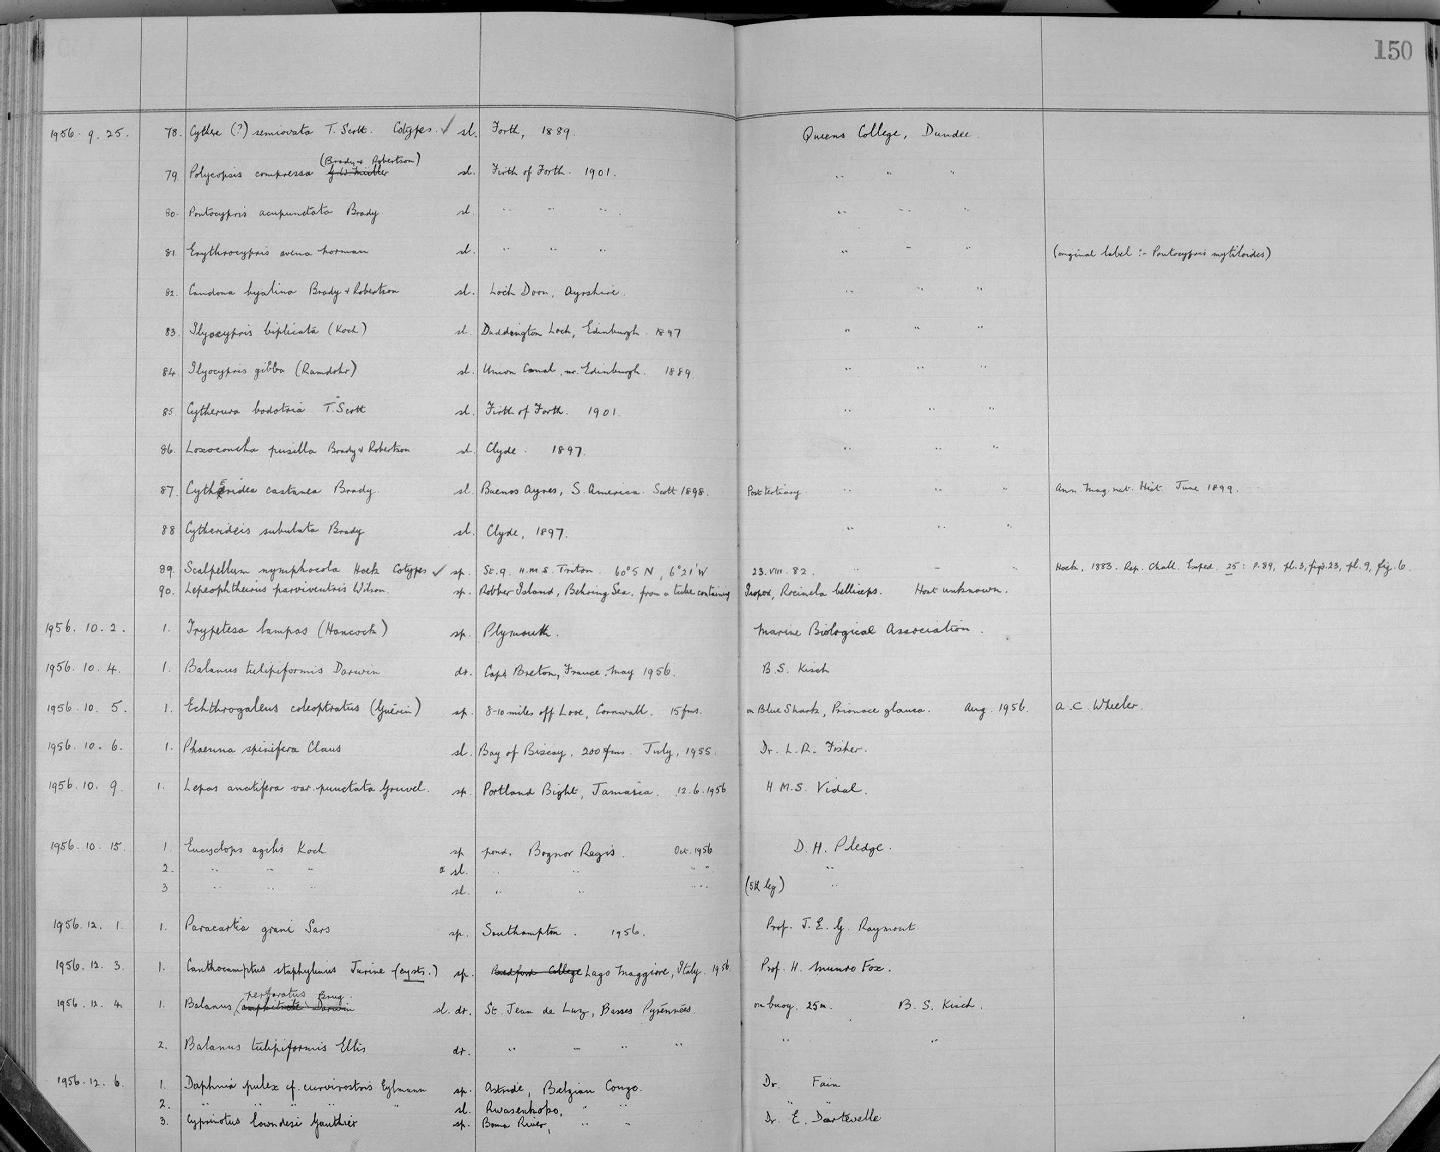 150
1956. 9. 25. 78. Cythere (?) semiovata T. Scott. Cotypes. ✓ sl. Forth, 1889. Queens College, Dundee.
(Brady & Robertson)
79. Polycopsis compressa G.W. Müller sl. Firth of Forth. 1901. " " "
80. Pontocypris acupunctata Brady sl. " " " " " "
81. Erythrocypris avena Norman sl. " " " " " " (original label :- Pontocypris mytiloides)
82. Candona hyalina Brady & Robertson sl. Loch Doon, Ayrshire. " " "
83. Ilyocypris biplicata (Koch) sl. Duddington Loch, Edinburgh. 1897 " " "
84. Ilyocypris gibba (Ramdohr) sl. Union Canal, nr. Edinburgh. 1889. " " "
85 Cytherura bodotria T. Scott sl. Firth of Forth. 1901. " " "
86. Loxoconcha pusilla Brady & Robertson sl. Clyde. 1897. " " "
87. Cytheridea castanea Brady. sl. Buenos Ayres, S. America. Scott 1898. Post tertiary " " " Ann. Mag. nat. Hist. June 1899.
88 Cytherideis subulata Brady sl. Clyde, 1897. " " "
89. Scalpellum nymphocola Hoek Cotypes ✓ sp. St. 9. H.M.S. Triton. 60°5 N, 6°21'W 23. VIII. 82. " " " Hoek, 1883. Rep. Chall. Exped. 25: p.89, pl.3, figs.23, pl.9, fig. 6.
90. Lepeophtheirus parviventris Wilson. sp. Robber Island, Behring Sea, from a tube containing Isopod, Rocinela belliceps. Host unknown.
1956. 10. 2. 1. Trypetesa lampas (Hancock) sp. Plymouth. Marine Biological Association.
1956. 10. 4. 1. Balanus tulipiformis Darwin dr. Cape Breton, France. May 1956. B. S. Kisch
1956. 10. 5. 1. Echthrogaleus coleoptratus (Guérin) sp. 8-10 miles off Looe, Cornwall. 15 fms. on Blue Shark, Prionace glauca. Aug. 1956. A. C Wheeler.
1956. 10. 6. 1. Phaenna spinifera Claus sl. Bay of Biscay, 200 fms. July, 1955. Dr. L. R. Fisher.
1956. 10. 9. 1. Lepas anatifera var. punctata Gruvel. sp. Portland Bight, Jamaica. 12. 6. 1956 H.M.S. Vidal.
1956. 10. 15. 1. Eucyclops agilis Koch sp pond, Bognor Regis. Oct. 1956 D. H. Pledge.
2. " " " sl. " " " " "
3 " " " sl. " " " " (5th leg) "
1956. 12. 1. 1. Paracartia grani Sars sp. Southampton. 1956. Prof. J. E. G. Raymont
1956. 12. 3. 1. Canthocamptus staphylinus Jurine (cysts.) sp. Bedford College Lago Maggiore, Italy. 1956. Prof. H. Munro Fox.
perforatus Brug.
1956. 12. 4. 1. Balanus amphitrite Darwin sl. dr. St. Jean de Luz, Basses Pyrénnées. on buoy. 25m. B. S. Kisch.
2. Balanus tulipiformis Ellis dr. " " " " " "
1956. 12. 6. 1. Daphnia pulex cf. curvirostris Eylmann sp. Astrida, Belgian Congo. Dr. Fain
2. " " " " " sl. Rwasenkoko, " " "
3. Cyprinotus lowndesi Gauthier sp. Boma River, " " Dr E. Dartevelle